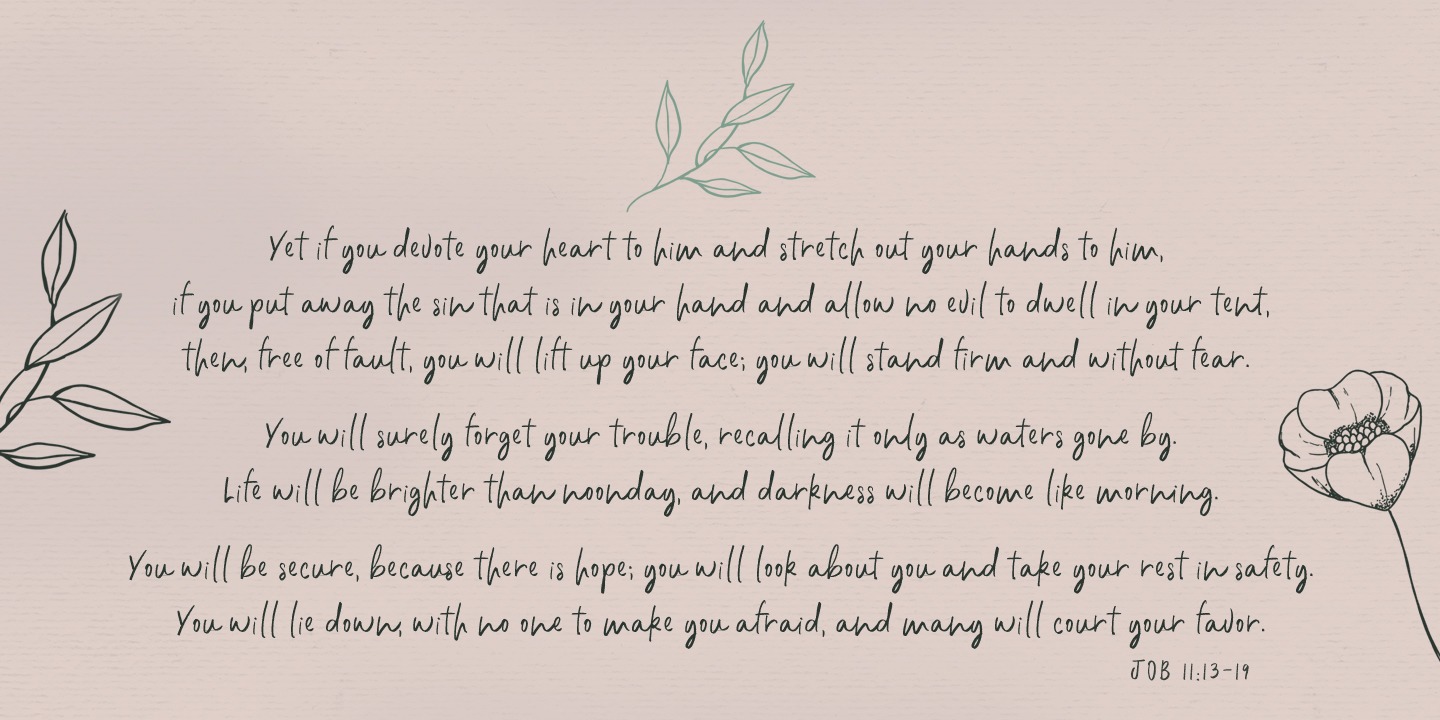 Yet if you devote your heart to him and stretch out your hands to him,
if you put away the sin that is in your hand and allow no evil to dwell in your tent,
then, free of fault, you will lift up your face; you will stand firm and without fear.
You will surely forget your trouble, recalling it only as waters gone by.
Life will be brighter than noonday, and darkness will become like morning.
You will be secure, because there is hope; you will look about you and take your rest in safety.
You will lie down, with no one to make you afraid, and many will court your favor.
JOB 11:13-19